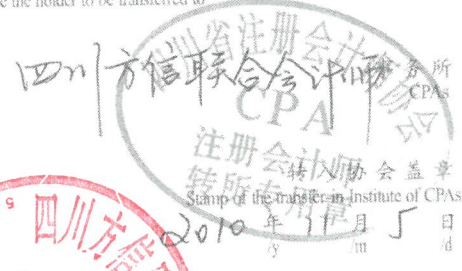 the holder to be transferred to
四川方信联合会计师事务所
CPAs
四川省注册会计师协会
CPA
注册会计师
转所专用章
转入协会盖章
Stamp of the transfer-in Institute of CPAs
2010 年 11 月 5 日
/y /m /d
四川方信
5